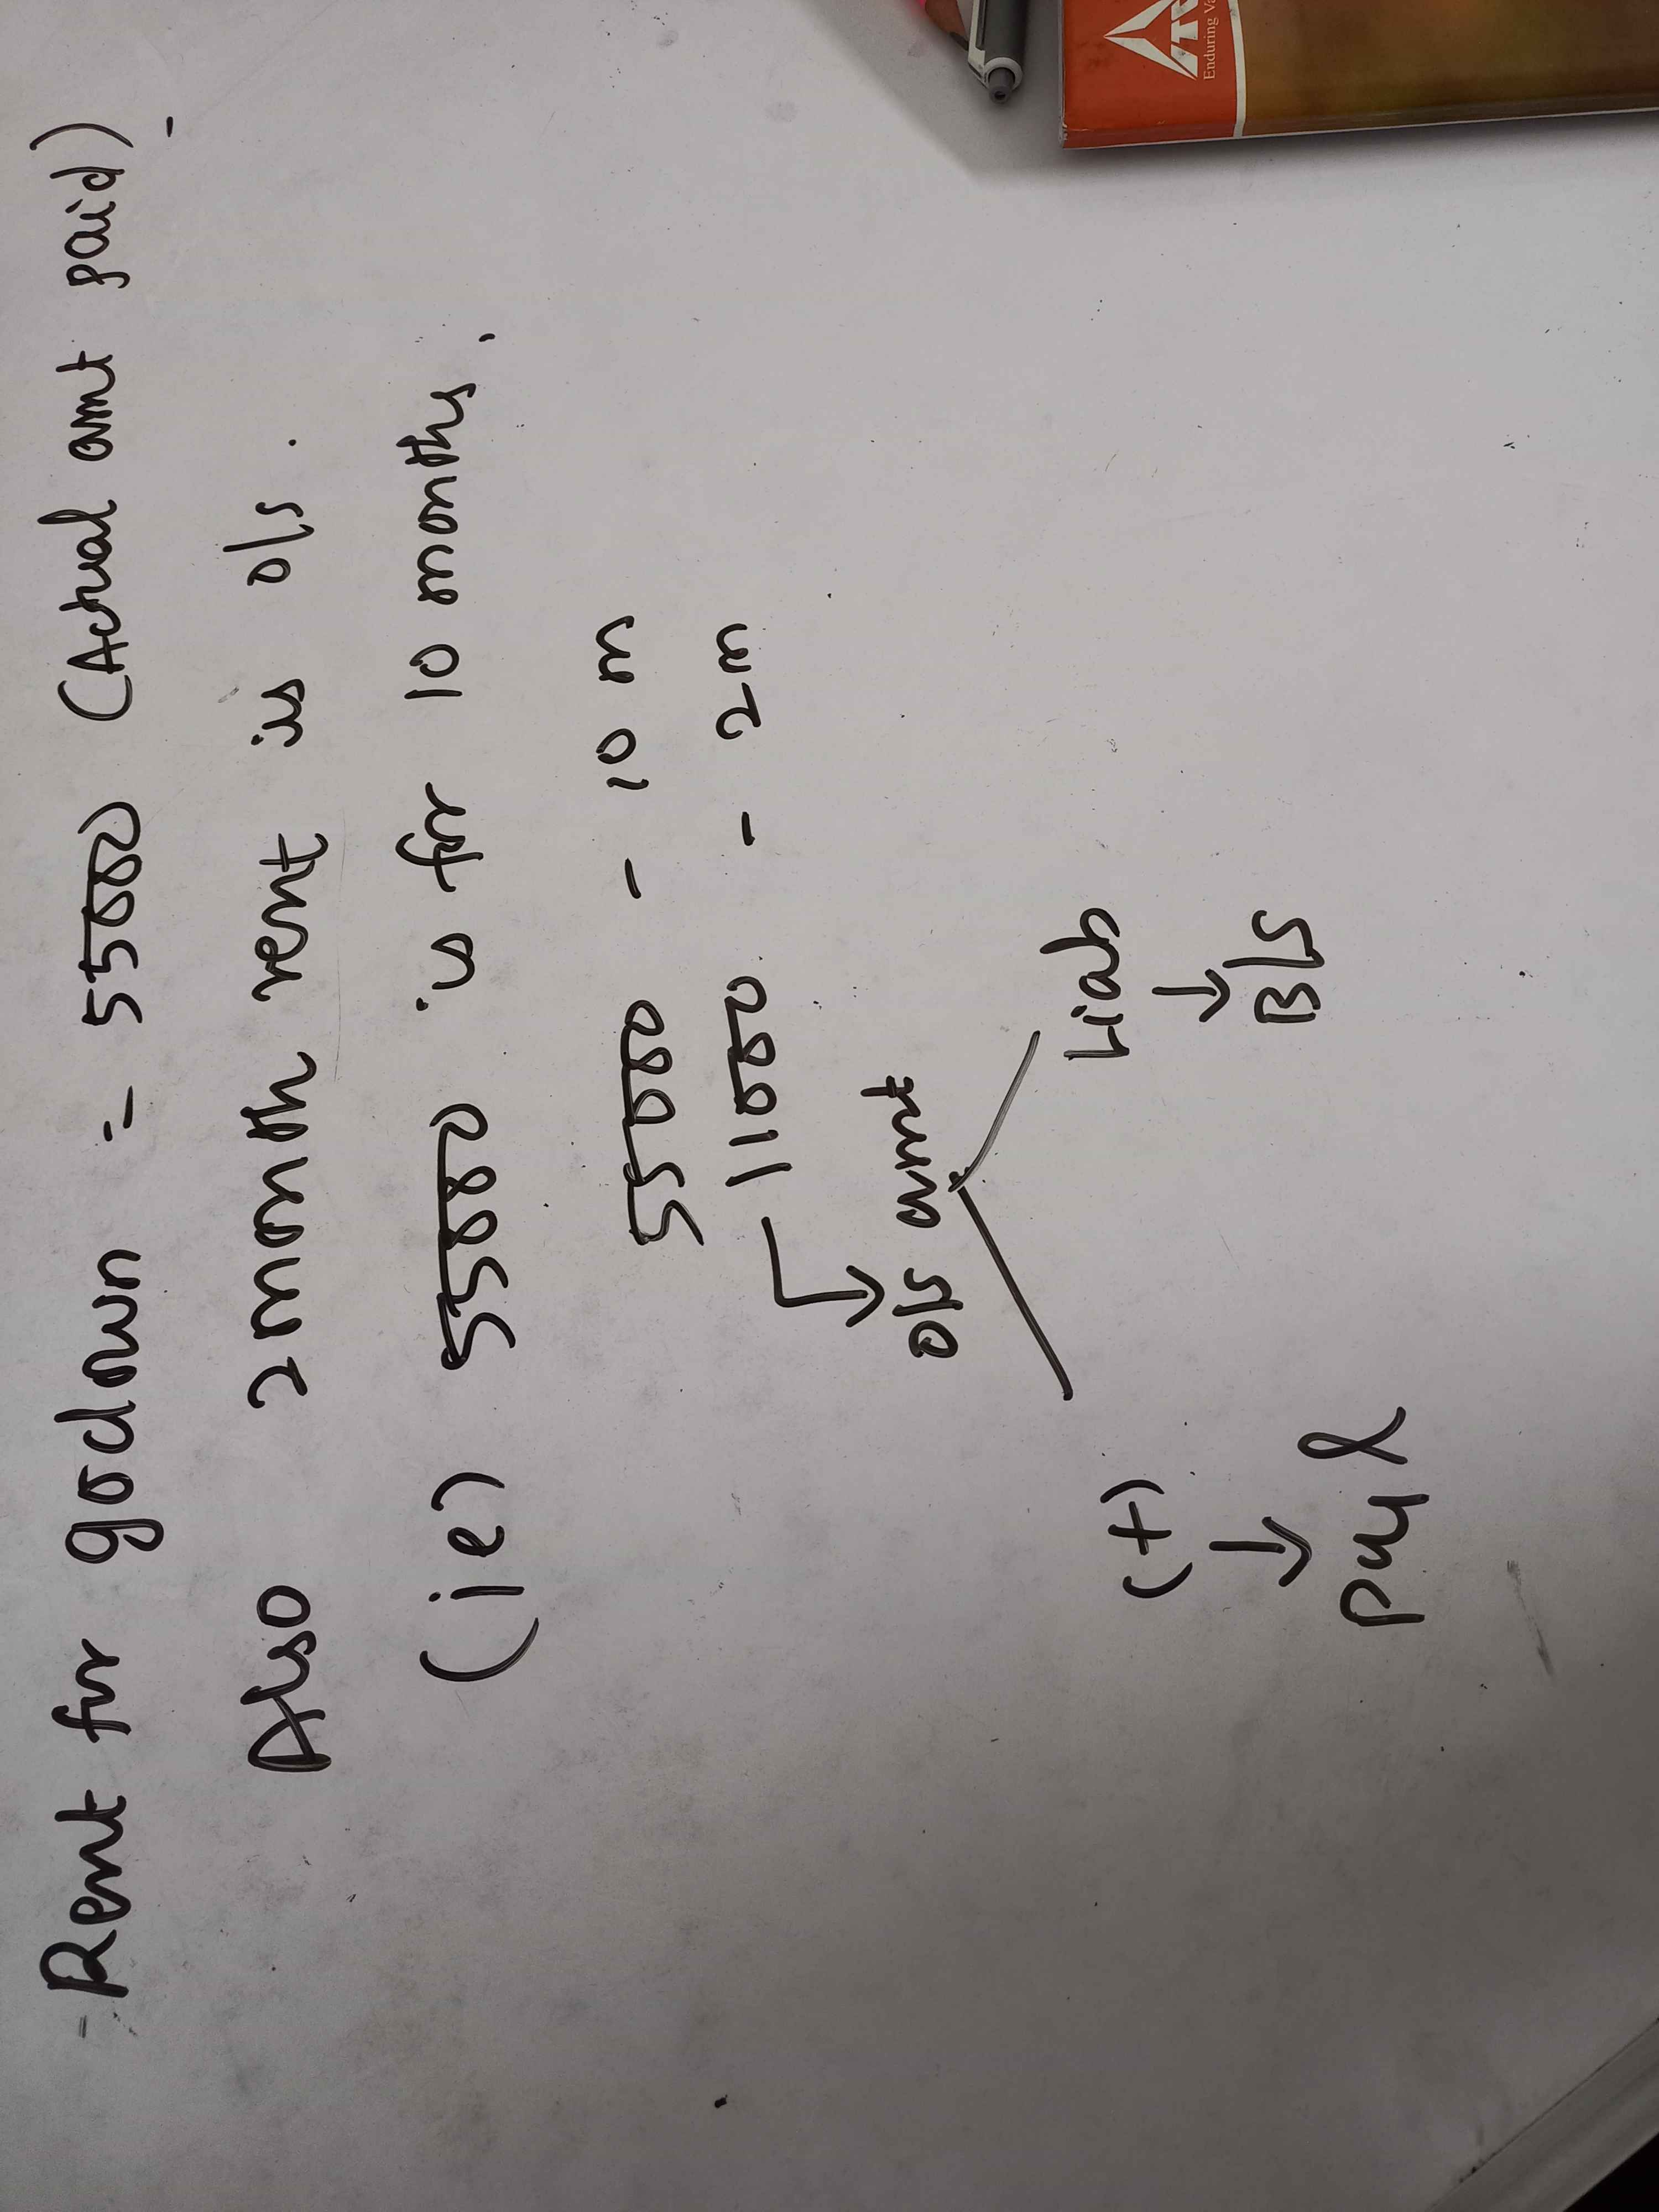 Rent for godown = 55000 (Actual amt paid)
Also 2 month rent is o/s.
(ie) 55000 is for 10 months.
55000 - 10 m
11000 - 2m
o/s amt
(+) Liab
B/S
Enduring Va